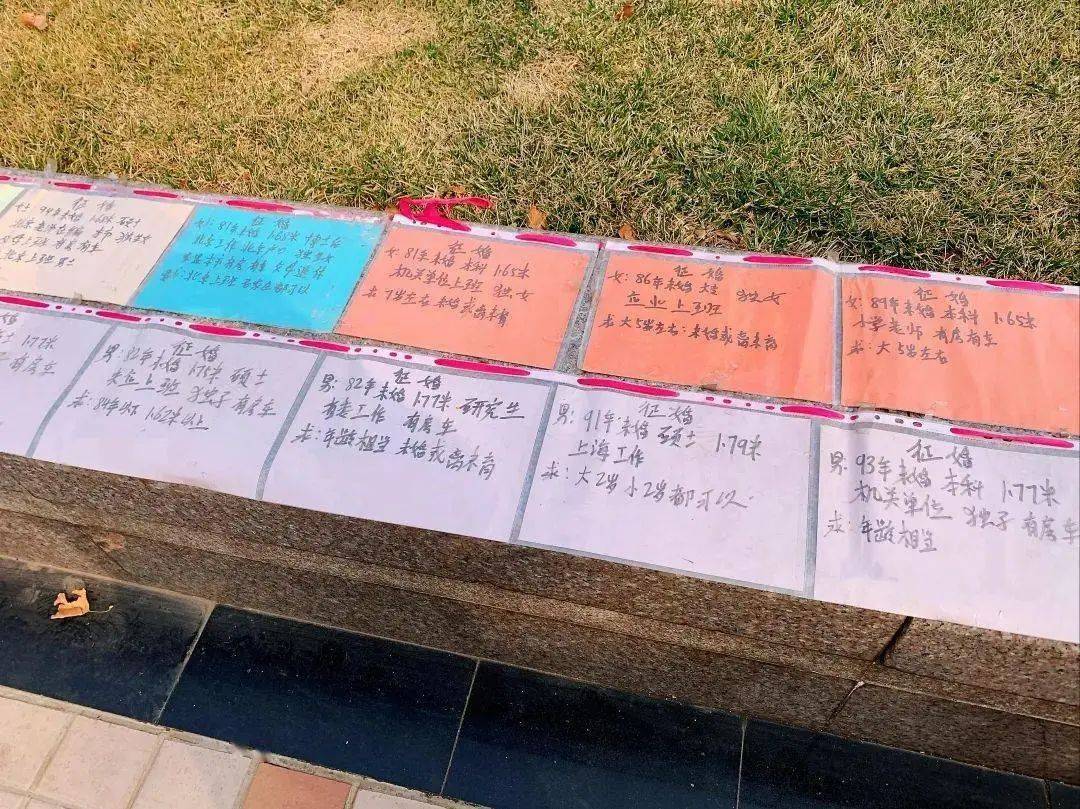 征婚
女: 94年未婚 1.68米 硕士
征婚
女: 81年未婚 1.65米
北京工作
征婚
女: 81年未婚 本科 1.65米
机关单位上班 独女
求 7岁左右 未婚或离未育
征婚
女: 86年未婚 大专
企业上班 独女
求 大5岁左右: 未婚或离未育
征婚
女: 89年未婚 本科 1.65米
小学老师 有房有车
求: 大5岁左右
1.77米
有房车
征婚
男: 82年未婚 1.75米 硕士
上班 独子 有房车
求: 84年以下 1.62米以上
征婚
男: 82年未婚 1.77米 研究生
工作 有房车
求: 年龄相当 未婚或离未育
征婚
男: 91年未婚 硕士 1.79米
上海工作
求: 大2岁 小2岁都可以
征婚
男: 93年未婚 本科 1.77米
机关单位 独子 有房车
求: 年龄相当